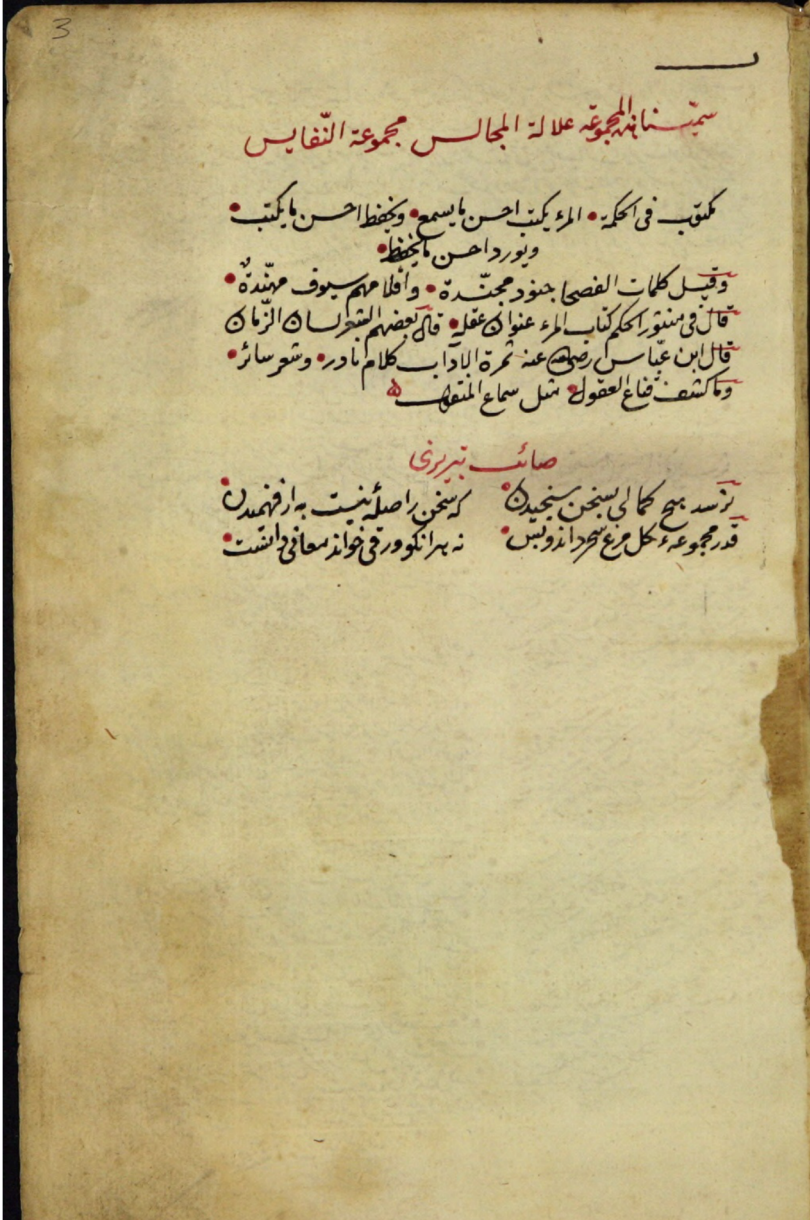 3
سميت هذه المجموعة علالة المجالس مجموعة النّفايس
مكتوب فى الحكمة • المرء يكتب احسن ما يسمع • ويحفظ احسن ما يكتب •
ويورد احسن ما يحفظ •
وقيل كلمات الفصحا جنود مجنّدة • وأقلامهم سيوف مهنّدةٌ •
قال فى منثور الحكم كتاب المرء عنوان عقله • قال بعضهم الشعر لسان الزّمان
قال ابن عبّاس رضى الله عنه ثمرة الآداب كلام نادر • وشعر سائر •
وما كشف قناع العقول • مثل سماع المنقول ه
صائب تبريزى
نرسد هيچ كمالى بسخن سنجيدن • كه سخن را صلهٔ نيست به از فهميدن •
قدر مجموعهء كل مرغ سحر داند وبس • نه هر انكو ورقى خواند معانى دانست •